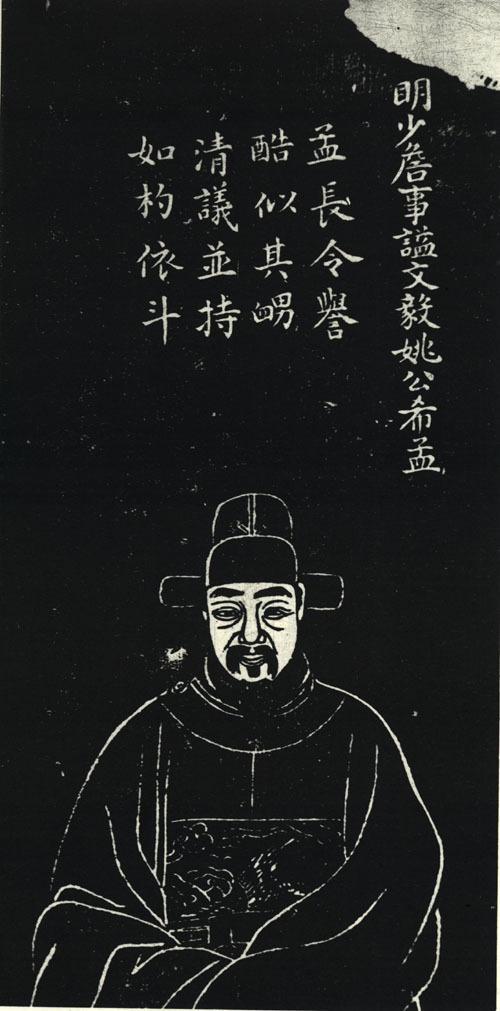 明少詹事諡文毅姚公希孟
孟長令譽
酷似其甥
清議並持
如杓依斗